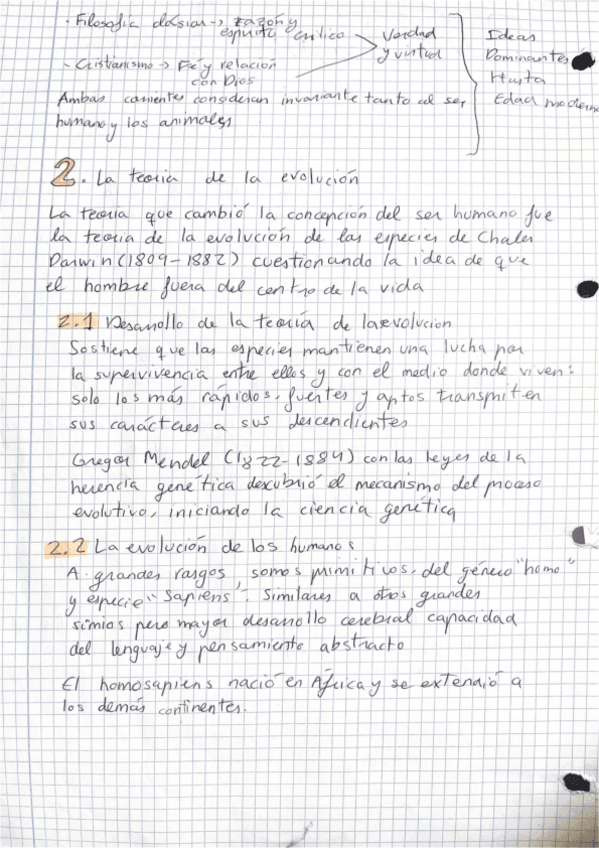 · Filosofía clásica → razón y
espíritu crítico
Verdad
y virtud
- Cristianismo → Fé y relación
con Dios
Ideas
Dominantes
Hasta
Edad moderna
Ambas corrientes consideran invariante tanto al ser
humano y los animales
2. La teoria de la evolución
La teoría que cambió la concepción del ser humano fue
la teoria de la evolución de las especies de Chales
Darwin (1809-1882) cuestionando la idea de que
el hombre fuera del centro de la vida
2.1 Desarrollo de la teoría de la evolucion
Sostiene que las especies mantienen una lucha por
la supervivencia entre ellos y con el medio donde viven:
solo los más rápidos, fuertes y aptos transmiten
sus carácteres a sus descendientes
Gregor Mendel (1822-1884) con las leyes de la
herencia genética descubrió el mecanismo del proceso
evolutivo, iniciando la ciencia genética
2.2 La evolución de los humanos
A grandes rasgos, somos primitivos, del género "homo"
y especie "Sapiens". Similares a otros grandes
simios pero mayor desarrollo cerebral capacidad
del lenguaje y pensamiento abstracto
El homosapiens nació en África y se extendió a
los demás continentes.